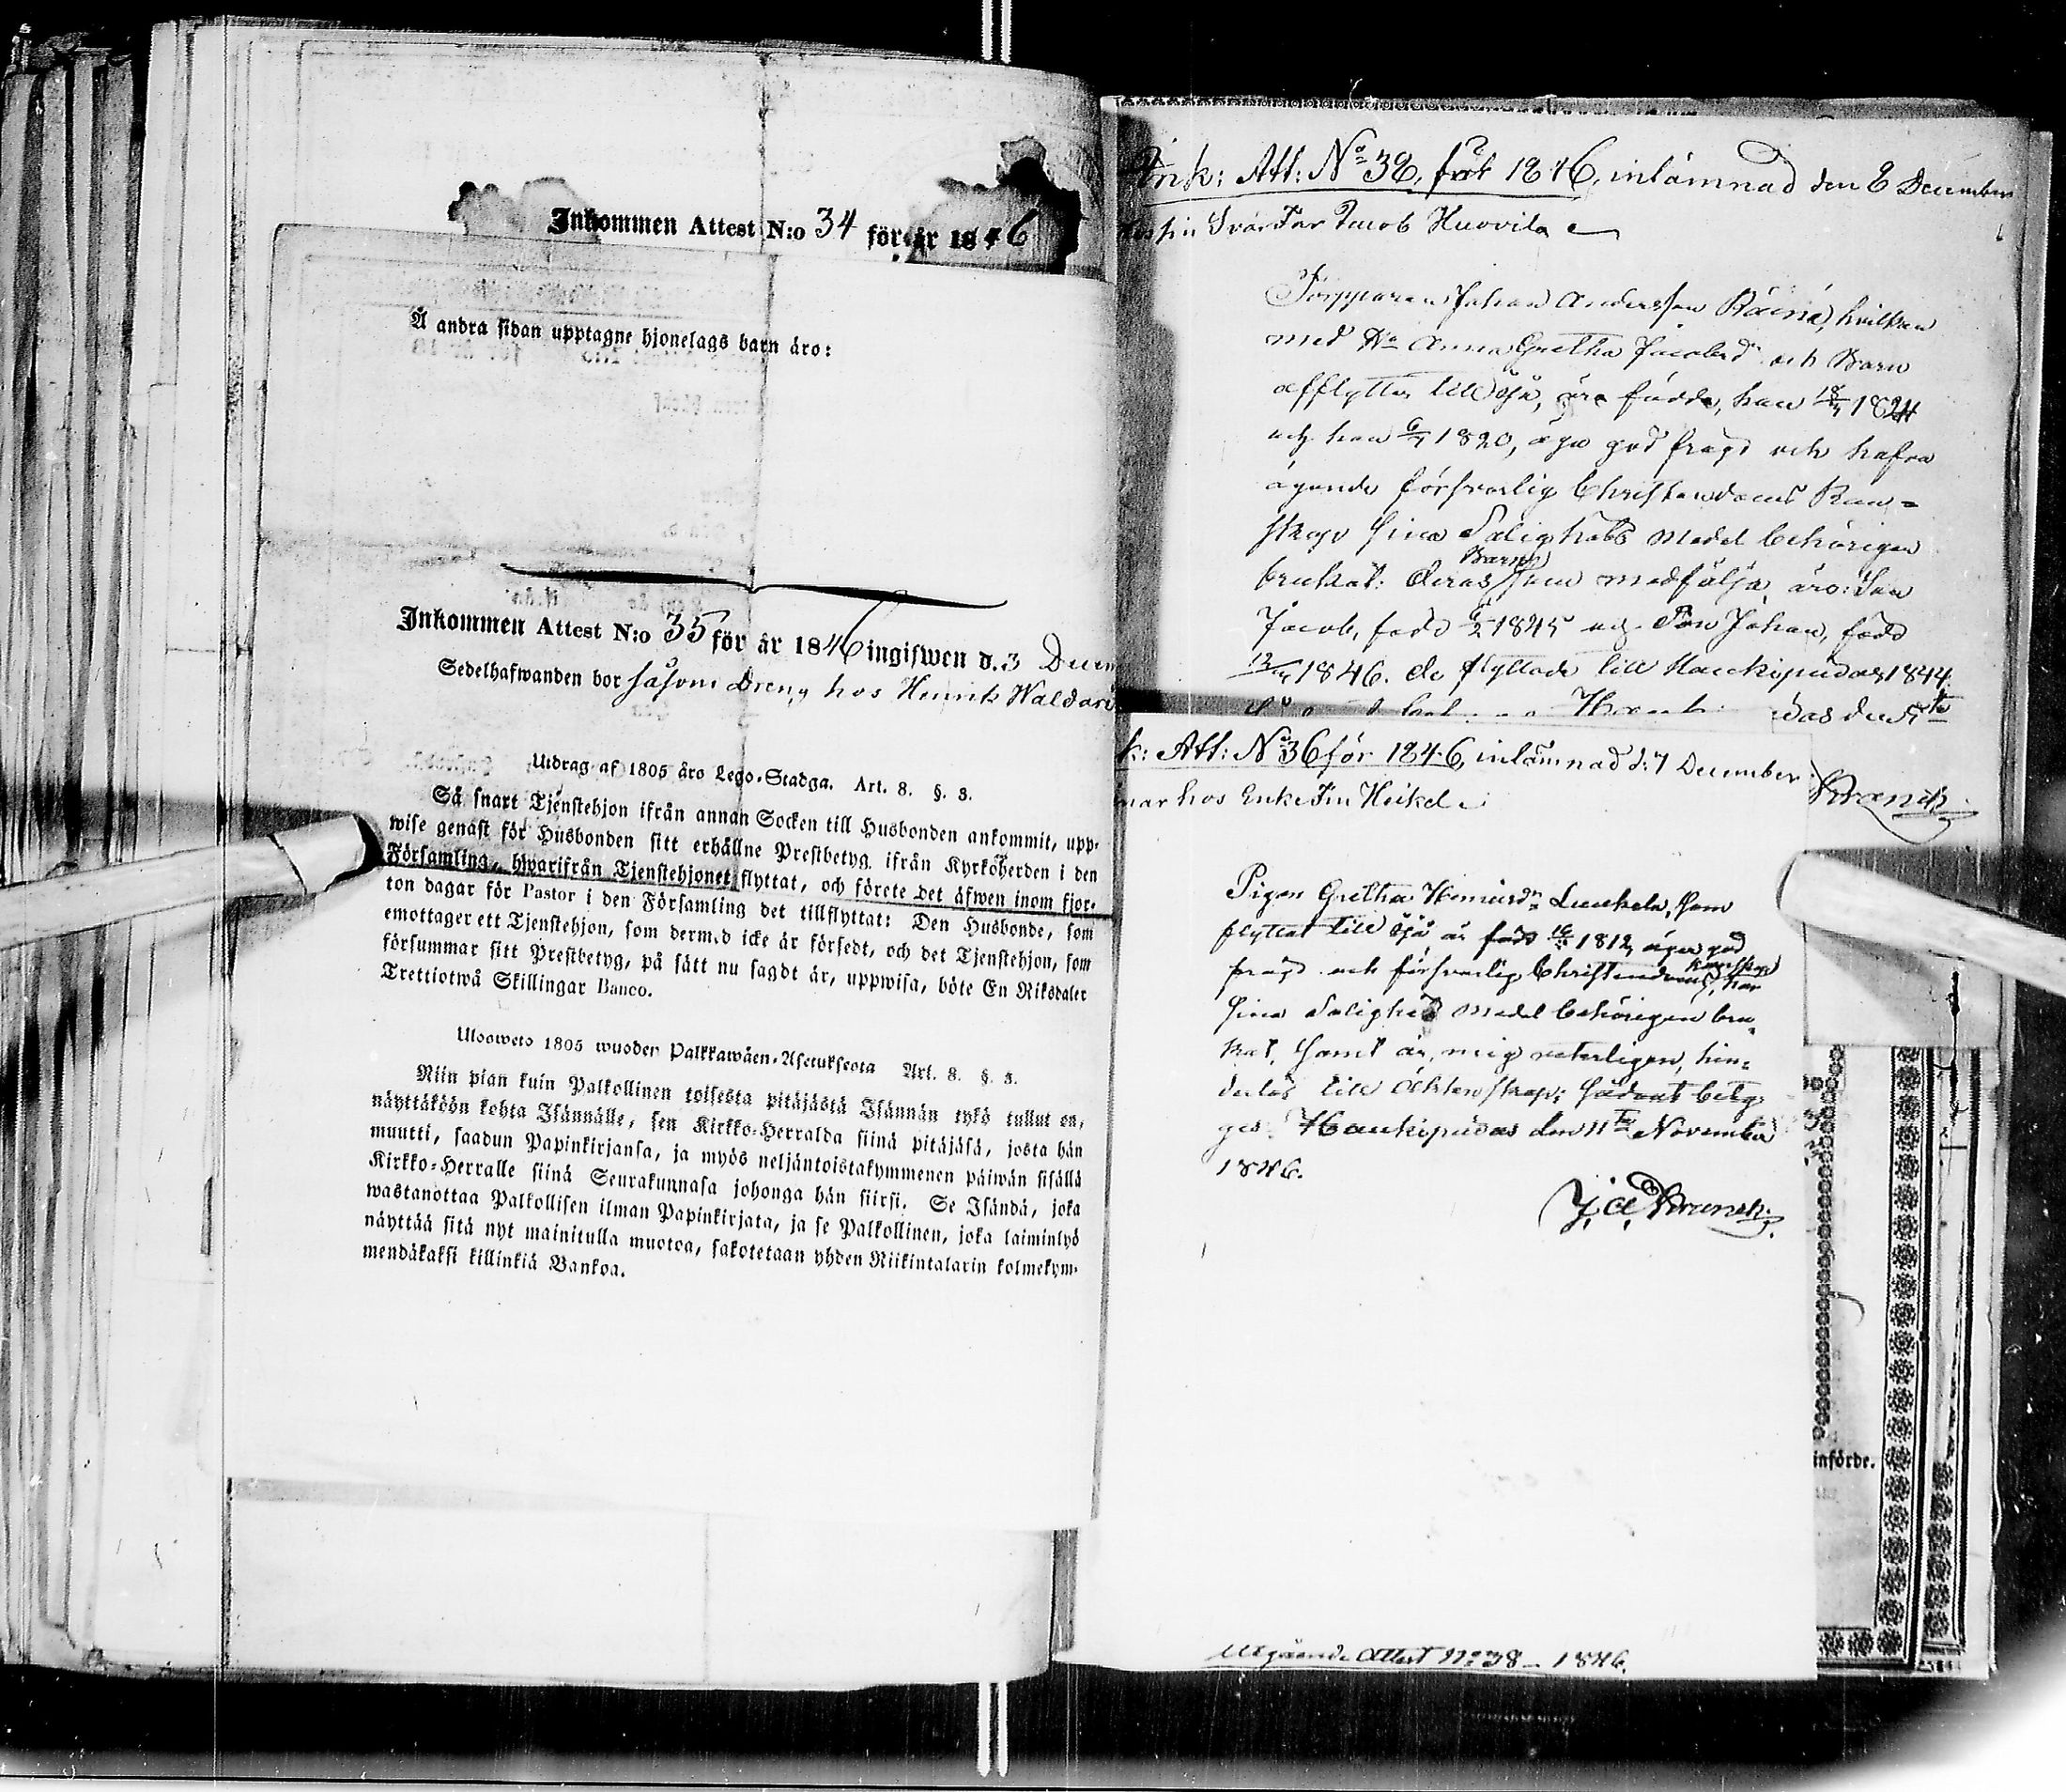 Inkommen Attest N:o 34 för år 1846
Å andra sidan upptagne hjonelags barn äro:
Inkommen Attest N:o 35 för år 1846 ingifwen d. 3 Decem
Sedelhafwanden bor såsom Dreng hos Henrik Waldari
Utdrag af 1805 års Lego-Stadga. Art. 8. §. 3.
Så snart Tjenstehjon ifrån annan Socken till Husbonden ankommit, upp-
wise genast för Husbonden sitt erhållne Prestbetyg ifrån Kyrkoherden i den
Församling, hwarifrån Tjenstehjonet flyttat, och förete det äfwen inom fjor-
ton dagar för Pastor i den Församling det tillflyttat: Den Husbonde, som
emottager ett Tjenstehjon, som dermed icke är försedt, och det Tjenstehjon, som
försummar sitt Prestbetyg, på sätt nu sagdt är, uppwisa, böte En Riksdaler
Trettiotwå Skillingar Banco.
Ulosweto 1805 wuoden Palkkawäen-Asetuksesta Art. 8. §. 3.
Niin pian kuin Palkollinen toisesta pitäjästä Isännän tykö tullut on,
näyttäköön kohta Isännälle, sen Kirkko-Herralda siinä pitäjäsä, josta hän
muutti, saadun Papinkirjansa, ja myös neljäntoistakymmenen päiwän sisällä
Kirkko-Herralle siinä Seurakunnasa johonga hän siirsi. Se Isändä, joka
wastanottaa Palkollisen ilman Papinkirjata, ja se Palkollinen, joka laiminlyö
näyttää sitä nyt mainitulla muotoa, sakotetaan yhden Riikintalarin kolmekym-
mendäkaksi killinkiä Bankoa.
Ink: Att: No 38, för 1846, inlämnad den 8 December
hos sin Svär Far Jacob Huovila
Torpparen Johan Andersson Räinä, hvilken
med H:u Anna Gretha Jacobsd:r och Barn
afflyttar till Ijå, äro födde, han 18/7 1824
och hon 6/7 1820, äga god frägd och hafva
ägande försvarlig Christendoms Kun-
skap sina Salighets Medel behörigen
brukat: deras Barn som medfölja, äro: Son
Jacob, född 6/2 1845 och Son Johan, född
1846. de flyttade till Haukipudas 1844.
das den 5te
k: Att: No 36 för 1846, inlämnad d: 7 December
nar hos Enke Fru Heikel
Kranck
Pigan Gretha Henricsd:r Luukela, som
flyttat till Ijå är född 16 1812, äger god
frägd och försvarlig Christendoms Kunskap, har
sina Salighets Medel behörigen bru-
kat, samt är, mig veterligen, hin-
derlös till Äktenskap; sådant bety-
gas. Haukipudas den 11te November
1846.
J. A. Kranck.
införde.
Utgående Attest No 38 – 1846.